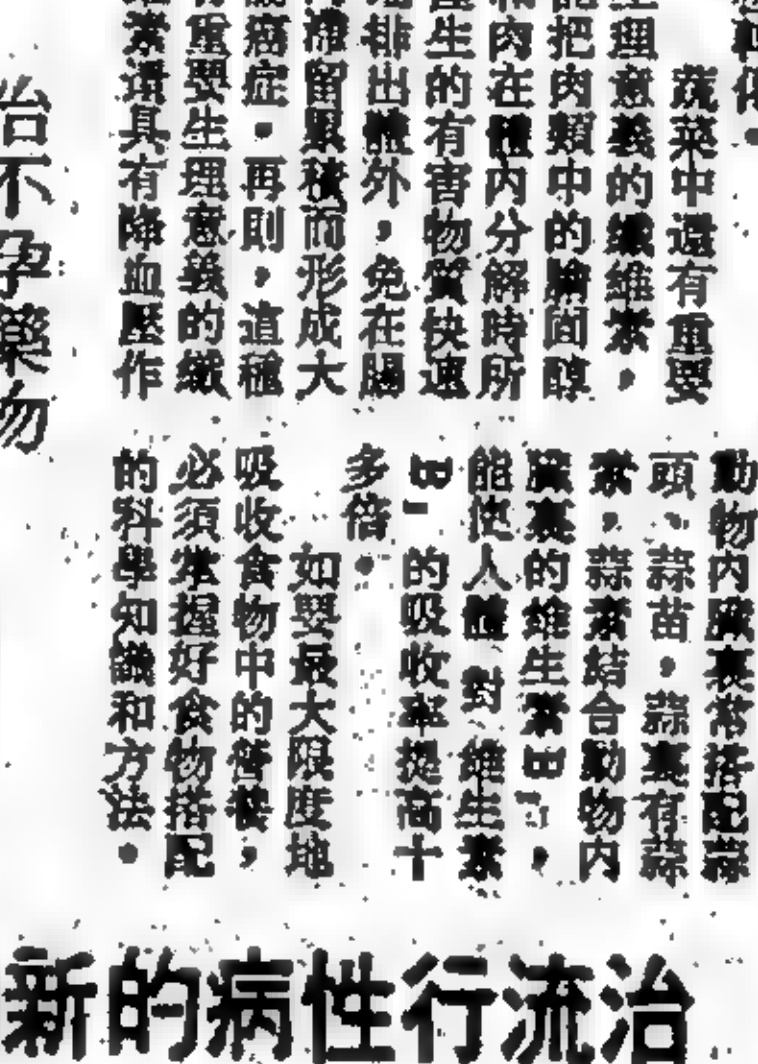 蔬菜中還有重要
生理意義的纖維素,
能把肉類中的膽固醇
和肉在體內分解時所
產生的有害物質快速
地排出體外,免在腸
內滯留累積而形成大
腸癌症。再則,這種
有重要生理意義的纖
維素還具有降血壓作
動物內臟裏常搭配蒜
頭、蒜苗。蒜裏有蒜
素,蒜素結合動物內
臟裏的維生素B1,
能使人體對維生素
B1的吸收率提高十
多倍。
如要最大限度地
吸收食物中的營養,
必須掌握好食物搭配
的科學知識和方法。
治不孕藥物
治流行性病的新